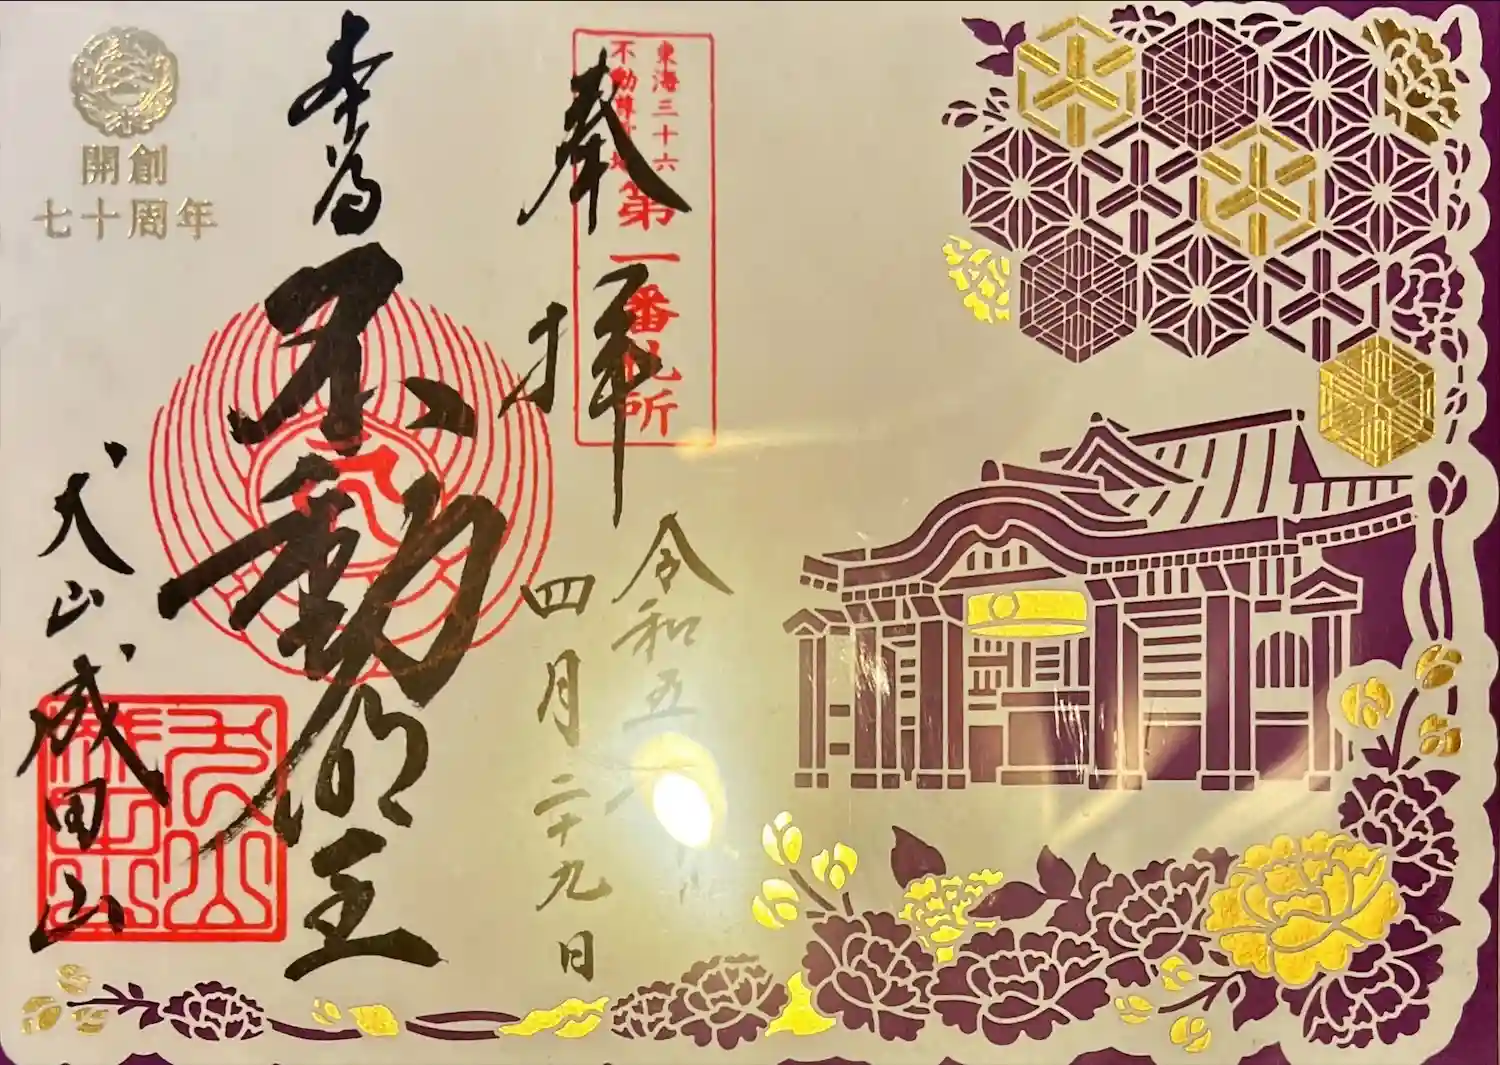 東海三十六
不動尊霊場
第一番札所
奉拝
令和五年
四月二十九日
本尊
不動明王
犬山成田山
開創
七十周年